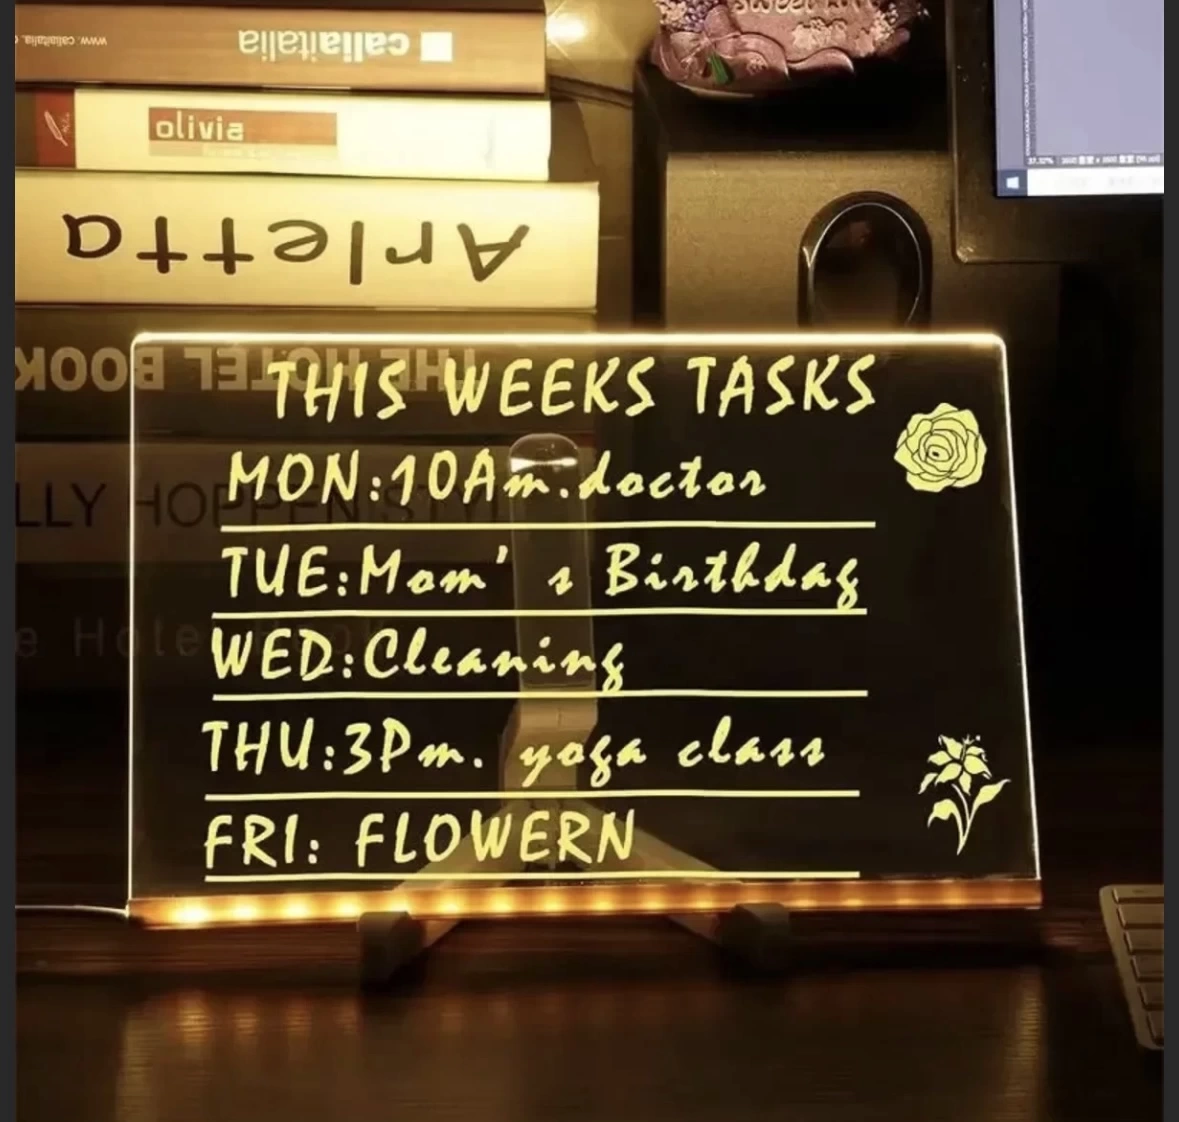 www. caliaitalia.
caliaitalia
olivia
Arletta
THE HOTEL BOOK
LLY HOPPEN STYL
e Hotel Book
THIS WEEKS TASKS
MON:10Am.doctor
TUE:Mom's Birthday
WED:Cleaning
THU:3Pm. yoga class
FRI: FLOWERN